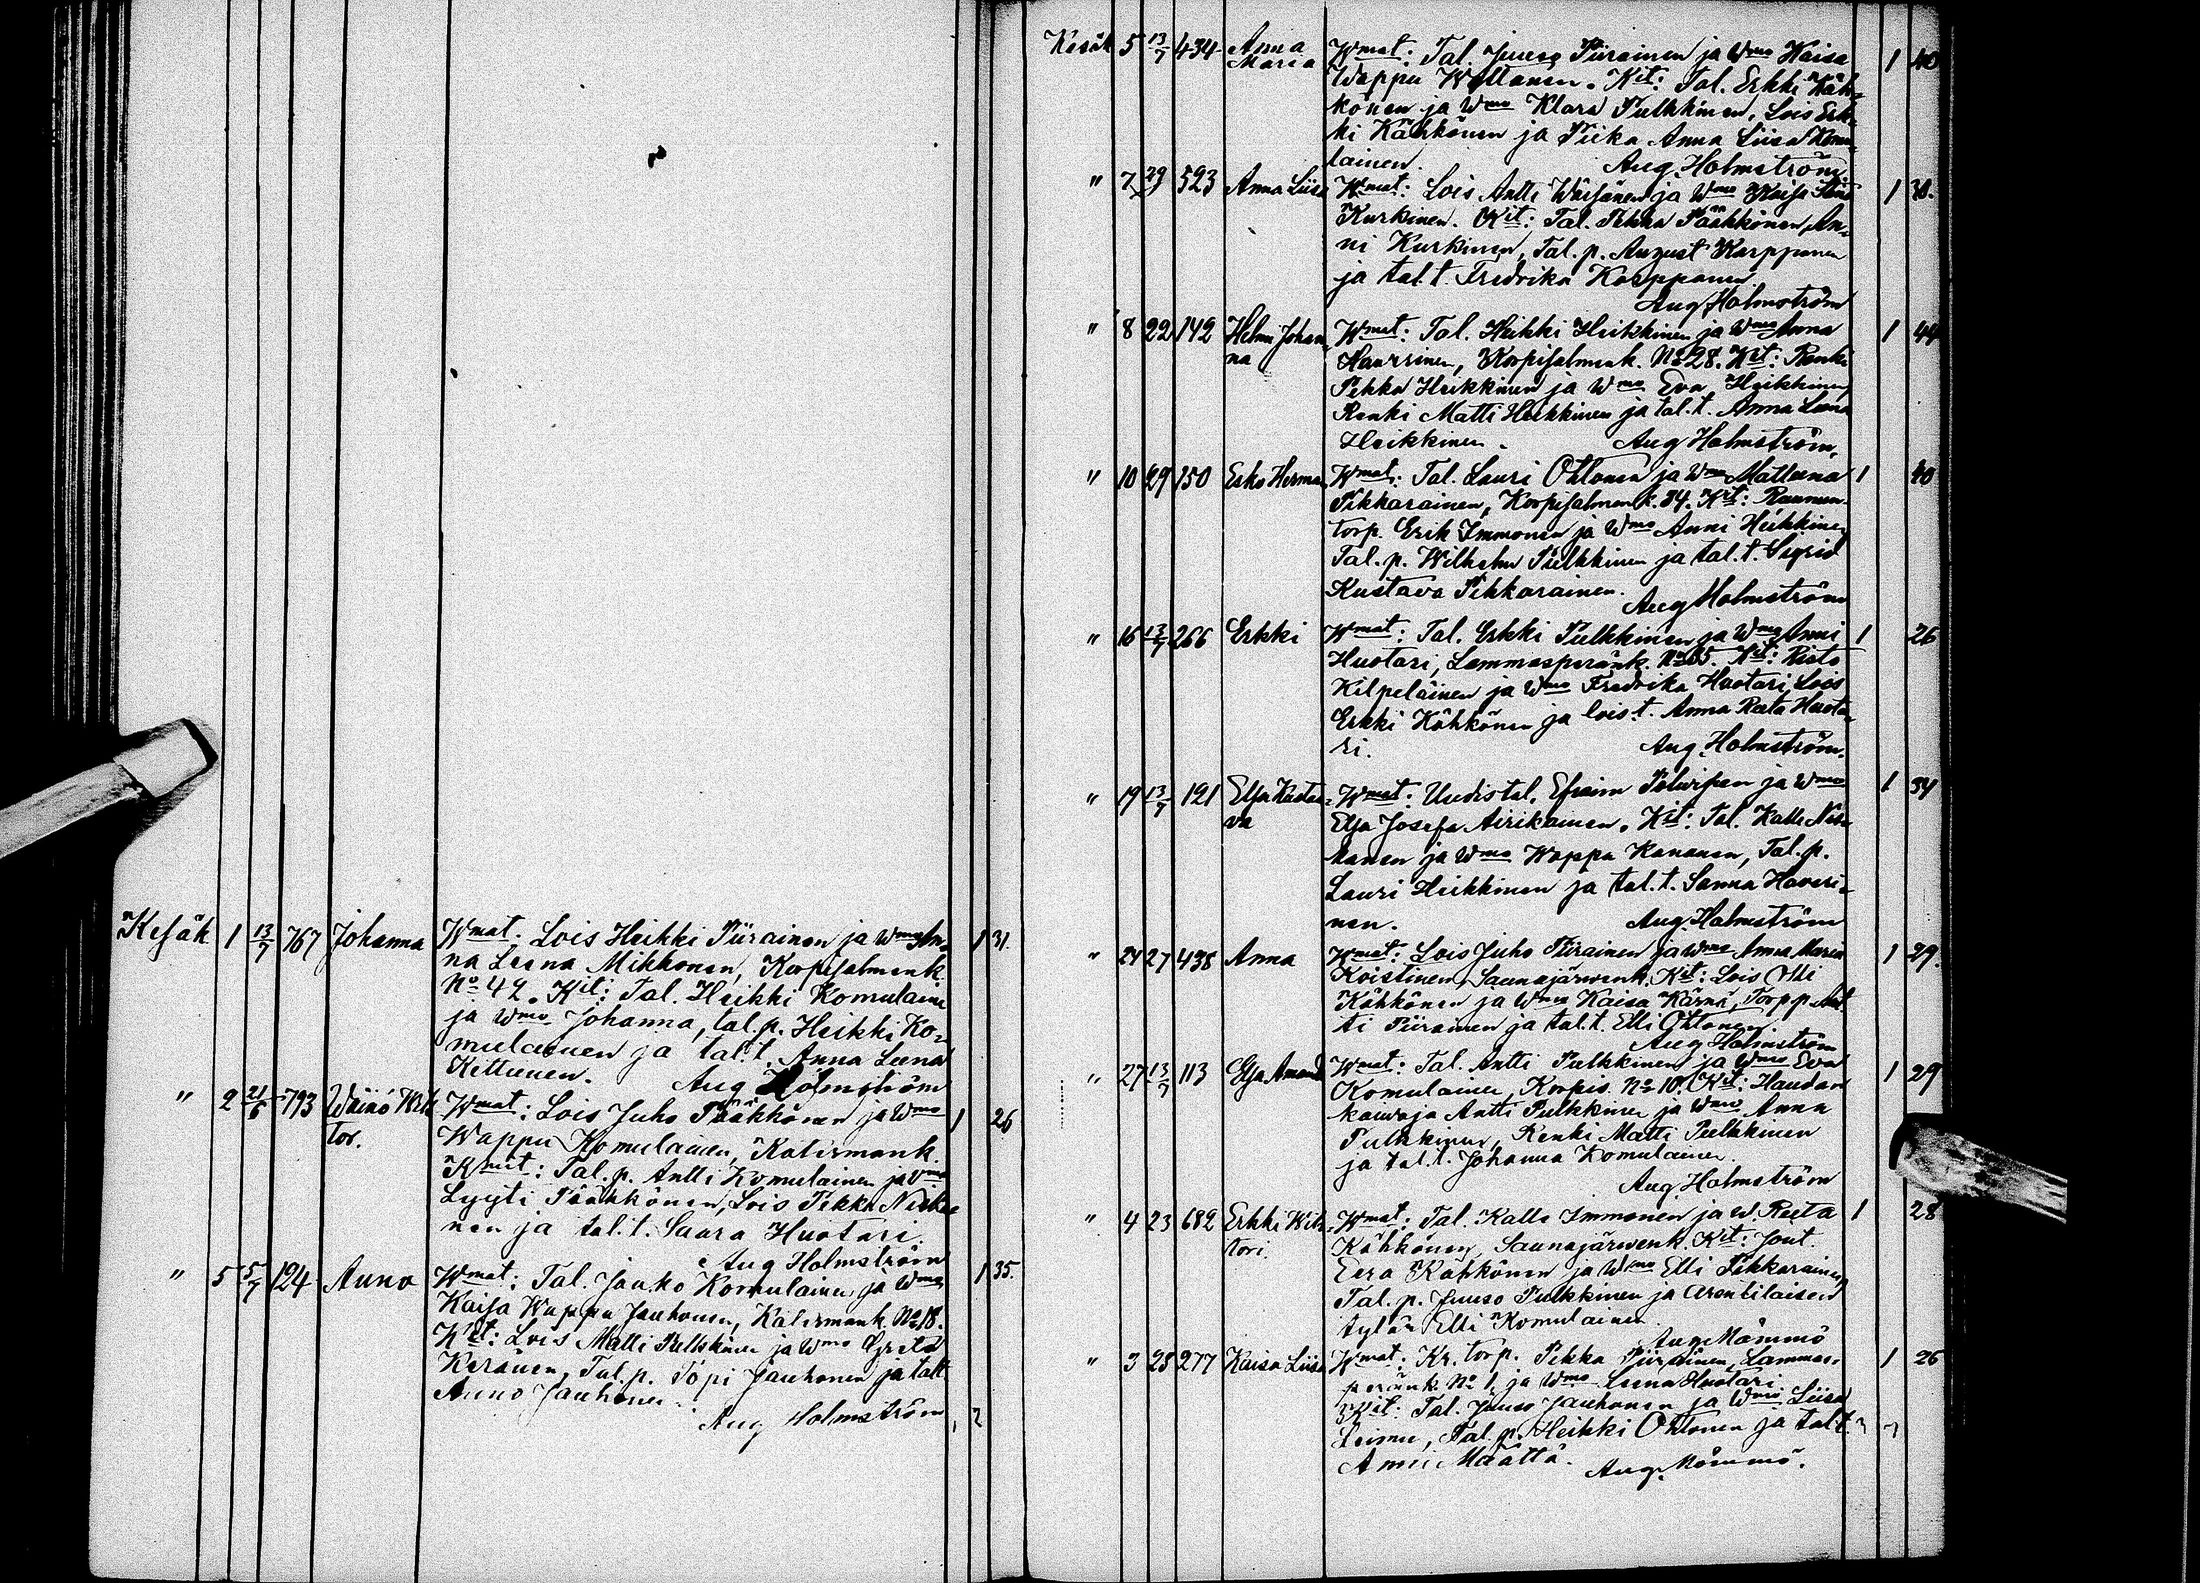 Kesäk 1 13/7 767 Johanna Wmat. Lois Heikki Piirainen ja Wmo An- 1 31.
na Leena Mikkonen, Korpisalmenk.
No 42. Kit: Tal. Heikki Komulaine
ja Wmo Johanna, tal.p. Heikki Ko-
mulainen ja tal.t. Anna Leena
Kettunen. Aug Holmström
" 2 21/6 793 Wäinö Wik Wmat: Lois Juho Pääkkönen ja Wmo 1 26
tor. Wappu Komulainen, Katermank.
Kmit: Tal.p. Antti Komulainen ja Wmo
Lyyti Pääkkönen, Lois Pekka Niska
nen ja tal.t. Saara Huotari.
Aug Holmström
" 5 5/7 124 Anna Wmat: Tal. Jaako Komulainen ja Wmo 1 35.
Kaisa Wappu Jauhonen, Katermank. No 18.
Kit: Lois Matti Pulkkinen ja Wmo Greta
Keränen, Tal.p. Topi Jauhonen ja talt
Anna Jauhonen.
Aug Holmström
Kesäk 5 13/7 434 Anna Wmat: Tal. Juuso Piirainen ja Wmo Kaisa 1 40
Maria Wappu Kit: Tal. Erkki Käh-
könen ja Wmo Klara Pulkkinen, Lois Erk-
ki Kähkönen ja Piika Anna Liisa Komu-
lainen. Aug. Holmström
" 7 29 523 Anna Liisa Wmat: Lois Antti ja Wmo Kaisa 1
Kurkinen. Kit: Tal. Pekka Pääkkönen, An-
ni Kurkinen, Tal.p. August Karppanen
ja tal.t. Fredrika Karppanen.
Aug. Holmström
" 8 22 142 Helmi Johan- Wmat: Tal. Heikki Heikkinen ja Wmo Anna 1 44
na Korpisalmenk. No 28. Kit: Renki
Pekka Heikkinen ja Wmo Eva Heikkinen,
Renki Matti Heikkinen ja tal.t. Anna Leena
Heikkinen. Aug Holmström.
" 10 29 150 Esko Herman Wmat: Tal. Lauri Ohtonen ja Wmo Matleena 1 40
Pikkarainen, Korpisalmenk. 34. Kit: Ruunun
torp. Erik Immonen ja Wmo Anni Heikkinen
Tal.p. Wilhelm Pulkkinen ja tal.t. Sigrid
Kustava Pikkarainen.
Aug Holmström
" 16 13/7 266 Erkki Wmat: Tal. Erkki Pulkkinen ja Wmo Anni 1 26
Huotari, Lammasperänk. No 65. Kit: Risto
Kilpeläinen ja Wmo Fredrika Huotari, Lois
Erkki Kähkönen ja lois.t. Anna Reeta Huota-
ri. Aug. Holmström.
" 19 13/7 121 Elsa Kusta- Wmat: Uudistal. Efraim ja Wmo 1 34
va Elsa Josefa Airikainen. Kit: Tal. Kalle
ja Wmo Wappu Kananen, Tal.p.
Lauri Heikkinen ja tal.t. Sanna Haveri-
nen. Aug. Holmström
" 24 27 438 Anna Wmat: Lois Juho Piirainen ja Wmo Anna Maria 1 29.
Koistinen, Saunajärwenk. Kit: Lois Olli
Kähkönen ja Wmo Kaisa Kärnä, Torpp. Ant
ti Piirainen ja tal.t. Elli Ohtonen.
Aug Holmström
" 27 13/7 113 Elsa Amand Wmat: Tal. Antti Pulkkinen ja Wmo Eva 1 29
Komulainen, Korpis. No 10. Kit: Haudan
kaiwaja Antti Pulkkinen ja Wmo Anna
Pulkkinen, Renki Matti Pulkkinen
ja tal.t. Johanna Komulainen.
Aug. Holmström
" 4 23 682 Erkki Wik- Wmat: Tal. Kalle Immonen ja W. Reeta 1 28
tori. Kähkönen, Saunajärwenk. Kit: Jout.
Eera Kähkönen ja Wmo Elli Pikkarainen,
Tal.p. Juuso Pulkkinen ja arentilaisen
tytär Elli Komulainen.
Aug. Mömmö
" 3 28 277 Kaisa Liisa Wmat: Kr. torp. Pekka Piirainen, Lammas- 1 26
peränk. No 1, ja Wmo Leena Huotari
Kit: Tal. Juuso Jauhonen ja Wmo Liisa
Leimu, Tal.p. Heikki Ohtonen ja tal.t.
Anni Määttä. Aug. Mömmö.